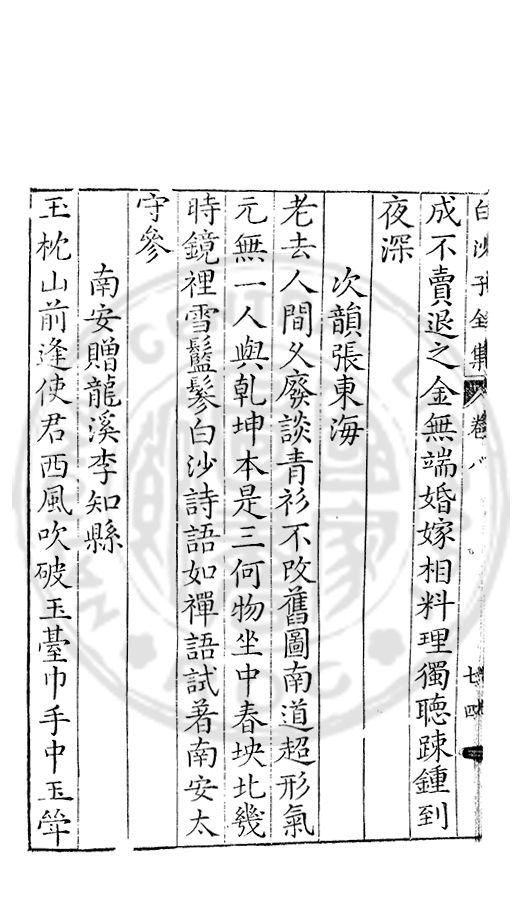 白沙子全集 卷八 七四
成不賣退之金無端婚嫁相料理獨聽踈鍾到
夜深
次韻張東海
老去人間久廢談青衫不改舊圖南道超形氣
元無一人與乾坤本是三何物坐中春坱北幾
時鏡裡雪鬖鬖白沙詩語如禪語試著南安太
守參
南安贈龍溪李知縣
玉枕山前逢使君西風吹破玉臺巾手中玉斝